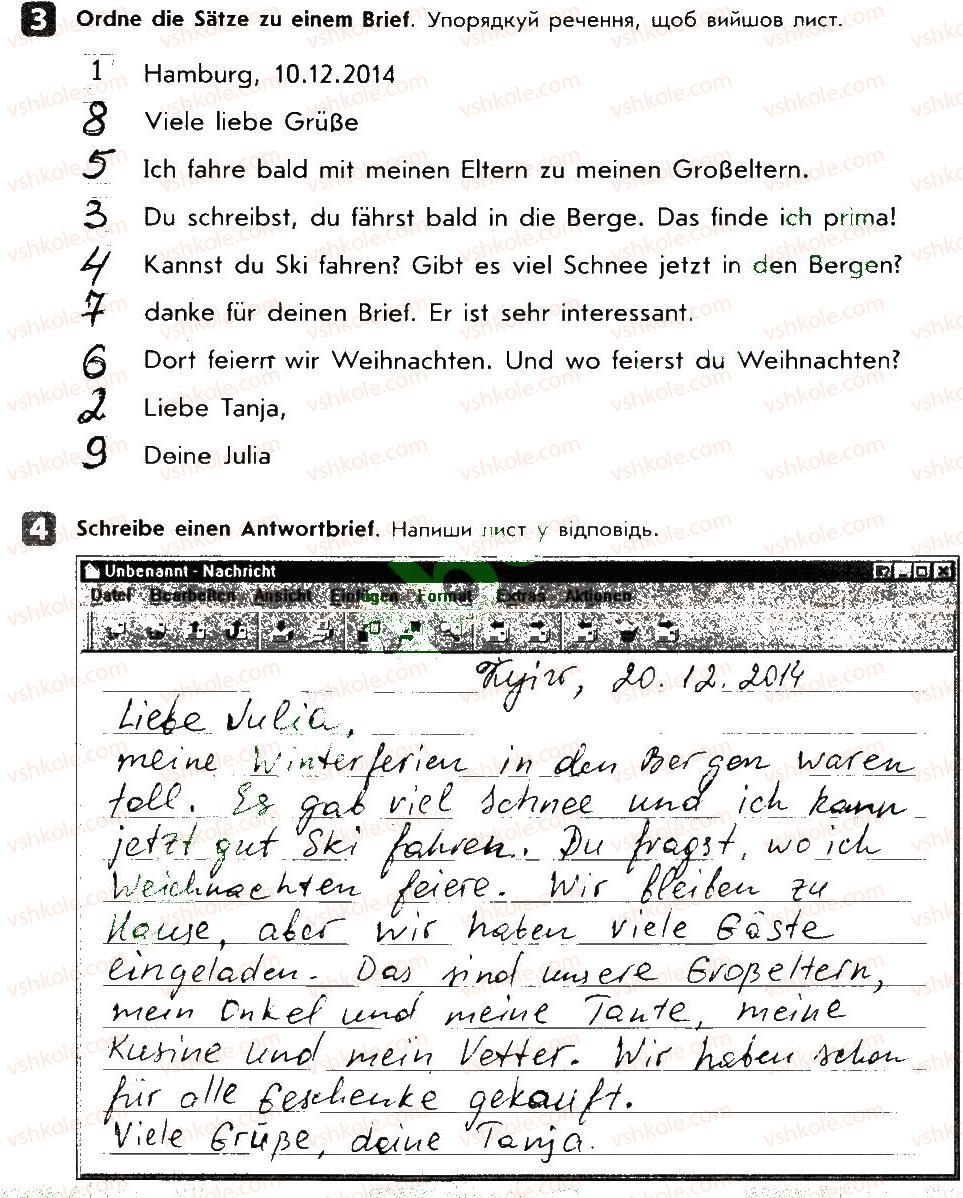 3 Ordne die Sätze zu einem Brief. Упорядкуй речення, щоб вийшов лист.
1 Hamburg, 10.12.2014
8 Viele liebe Grüße
5 Ich fahre bald mit meinen Eltern zu meinen Großeltern.
3 Du schreibst, du fährst bald in die Berge. Das finde ich prima!
4 Kannst du Ski fahren? Gibt es viel Schnee jetzt in den Bergen?
7 danke für deinen Brief. Er ist sehr interessant.
6 Dort feiern wir Weihnachten. Und wo feierst du Weihnachten?
2 Liebe Tanja,
9 Deine Julia
4 Schreibe einen Antwortbrief. Напиши лист у відповідь.
Unbenannt - Nachricht
Datei Bearbeiten Ansicht Einfügen Format Extras Aktionen
Kyiw, 20.12.2014
Liebe Julia,
meine Winterferien in den Bergen waren
toll. Es gab viel Schnee und ich kann
jetzt gut Ski fahren. Du fragst, wo ich
Weichnachten feiere. Wir bleiben zu
Hause, aber wir haben viele Gäste
eingeladen. Das sind unsere Großeltern,
mein Onkel und meine Tante, meine
Kusine und mein Vetter. Wir haben schon
für alle Geschenke gekauft.
Viele Grüße, deine Tanja.
vshkole.com